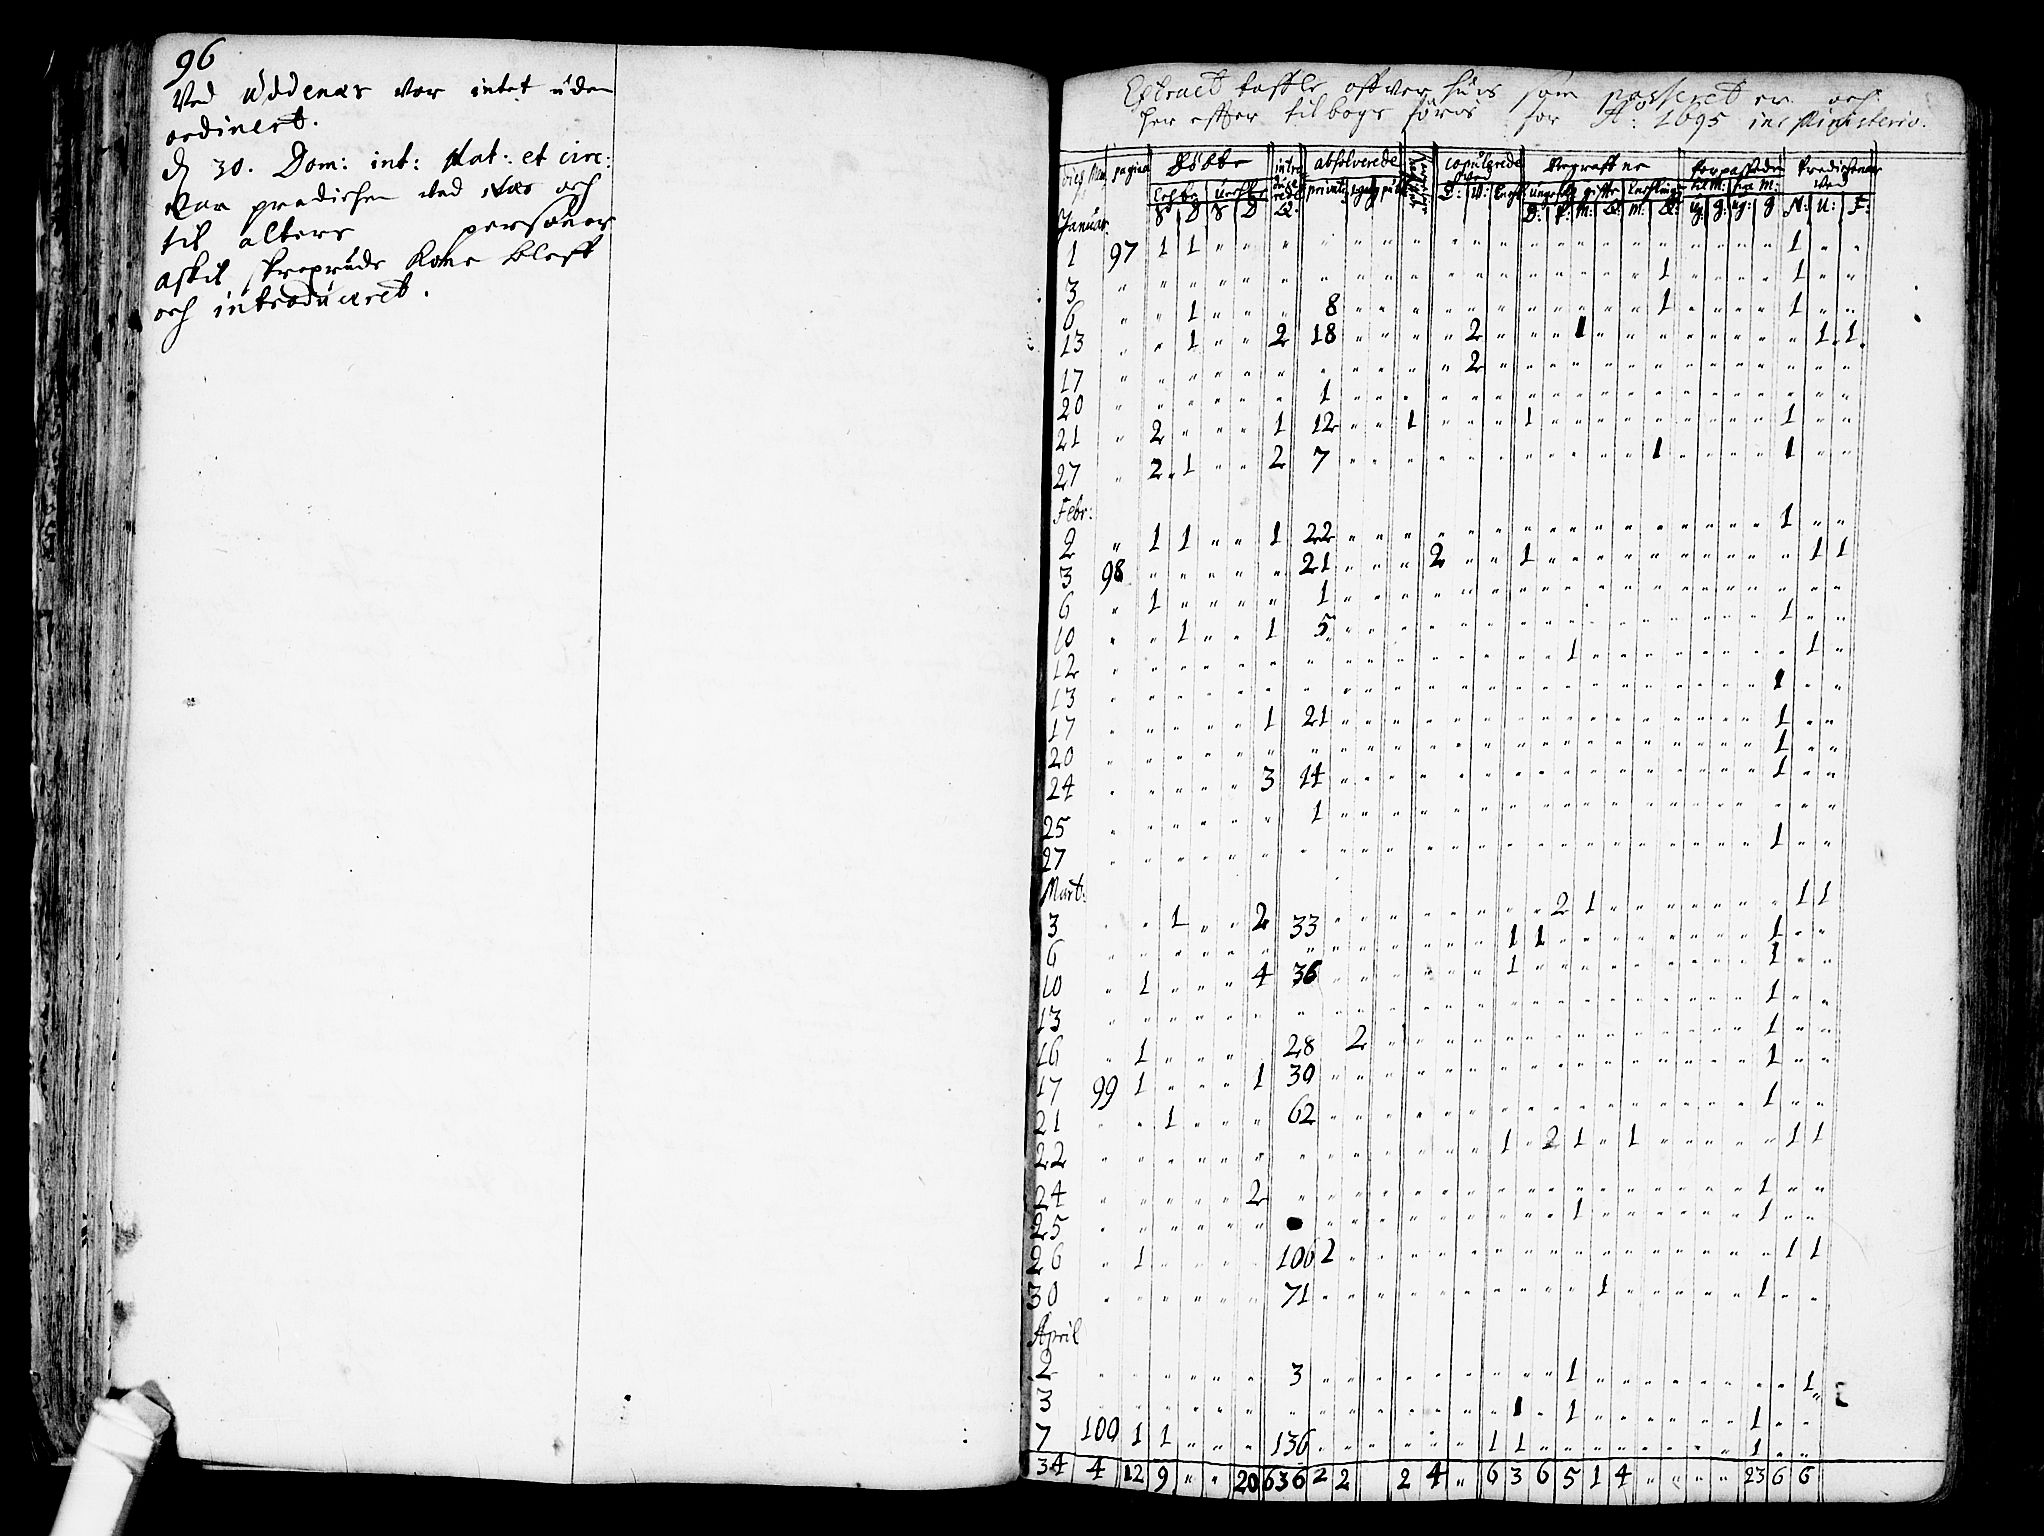 96
Ved Uddenæs var intet uden
ordinert.
d 30. Dom: int: Nat: et circ:
var predichen ved Næs och
til alters personer
Askil Kone bleff
och introduceret.
Extract taffle offver huis som passeret er och
her effter til bogs föris for Aō: 1695 in Ministerio.
pagina Döbte absolverede copulerede Begraffne Predichener
Januar:
1 97 1 1 " " " " " " " 1 " "
3 " " " " " " " 1 " 1 " "
6 " " 1 " " " 8 " " 1 " 1 " "
13 " " 1 " " 2 18 " " 2 " 1 " 1 1
17 " " " " " " " 2 " "
20 " " " " " " 1 " "
21 " 2 " " " 1 12 " " 1 " 1 " 1 " "
27 " 2 1 " " 2 7 " " 1 " 1 " "
Febr:
2 " 1 1 " " 1 22 " " 1 " "
3 98 " " " " " 21 " " 2 " " 1 " 1 1
6 " 1 " " " " 1 " "
10 " " 1 " " 1 5 " " 1 " "
12 " " " " " " " 1 " 1 "
13 " " " " " " " 1 " "
17 " " " " " 1 21 " " 1 " "
20 " " " " " " " 1 " "
24 " " " " " 3 14 " " 1 " "
25 " " " " " " 1 " "
27 " " " " " " " 1 " "
Mart:
3 " " 1 " " 2 33 " " 2 1 " 1 1
6 " " " " " " " 1 1 " 1 " "
10 " 1 " " " 4 36 " " 1 " 1 " "
13 " " " " " " " 1 " "
16 " 1 " " " " 28 2 " " 1 " "
17 99 1 " " " 1 30 " " 1 " "
21 " " 1 " " " 62 " " 1 " "
22 " " " " " " " 1 " 2 1 " 1 " 1 1
24 " " " " " 2 " " 1 " "
25 " " " " " " 1 " 1 " "
26 " 1 " " " " 106 2 " " 1 1
30 " " " " " " 71 " " 1 " 1 " "
April
2 " " " " " " 3 " " 1 " 1 "
3 " " " " " " " 1 " 1 " 1 " "
7 100 1 1 " " " 136 " " 1 1 " 1 " "
34 4 12 9 " " 20 636 2 2 2 4 " 6 3 6 5 1 4 " " " " 23 6 6